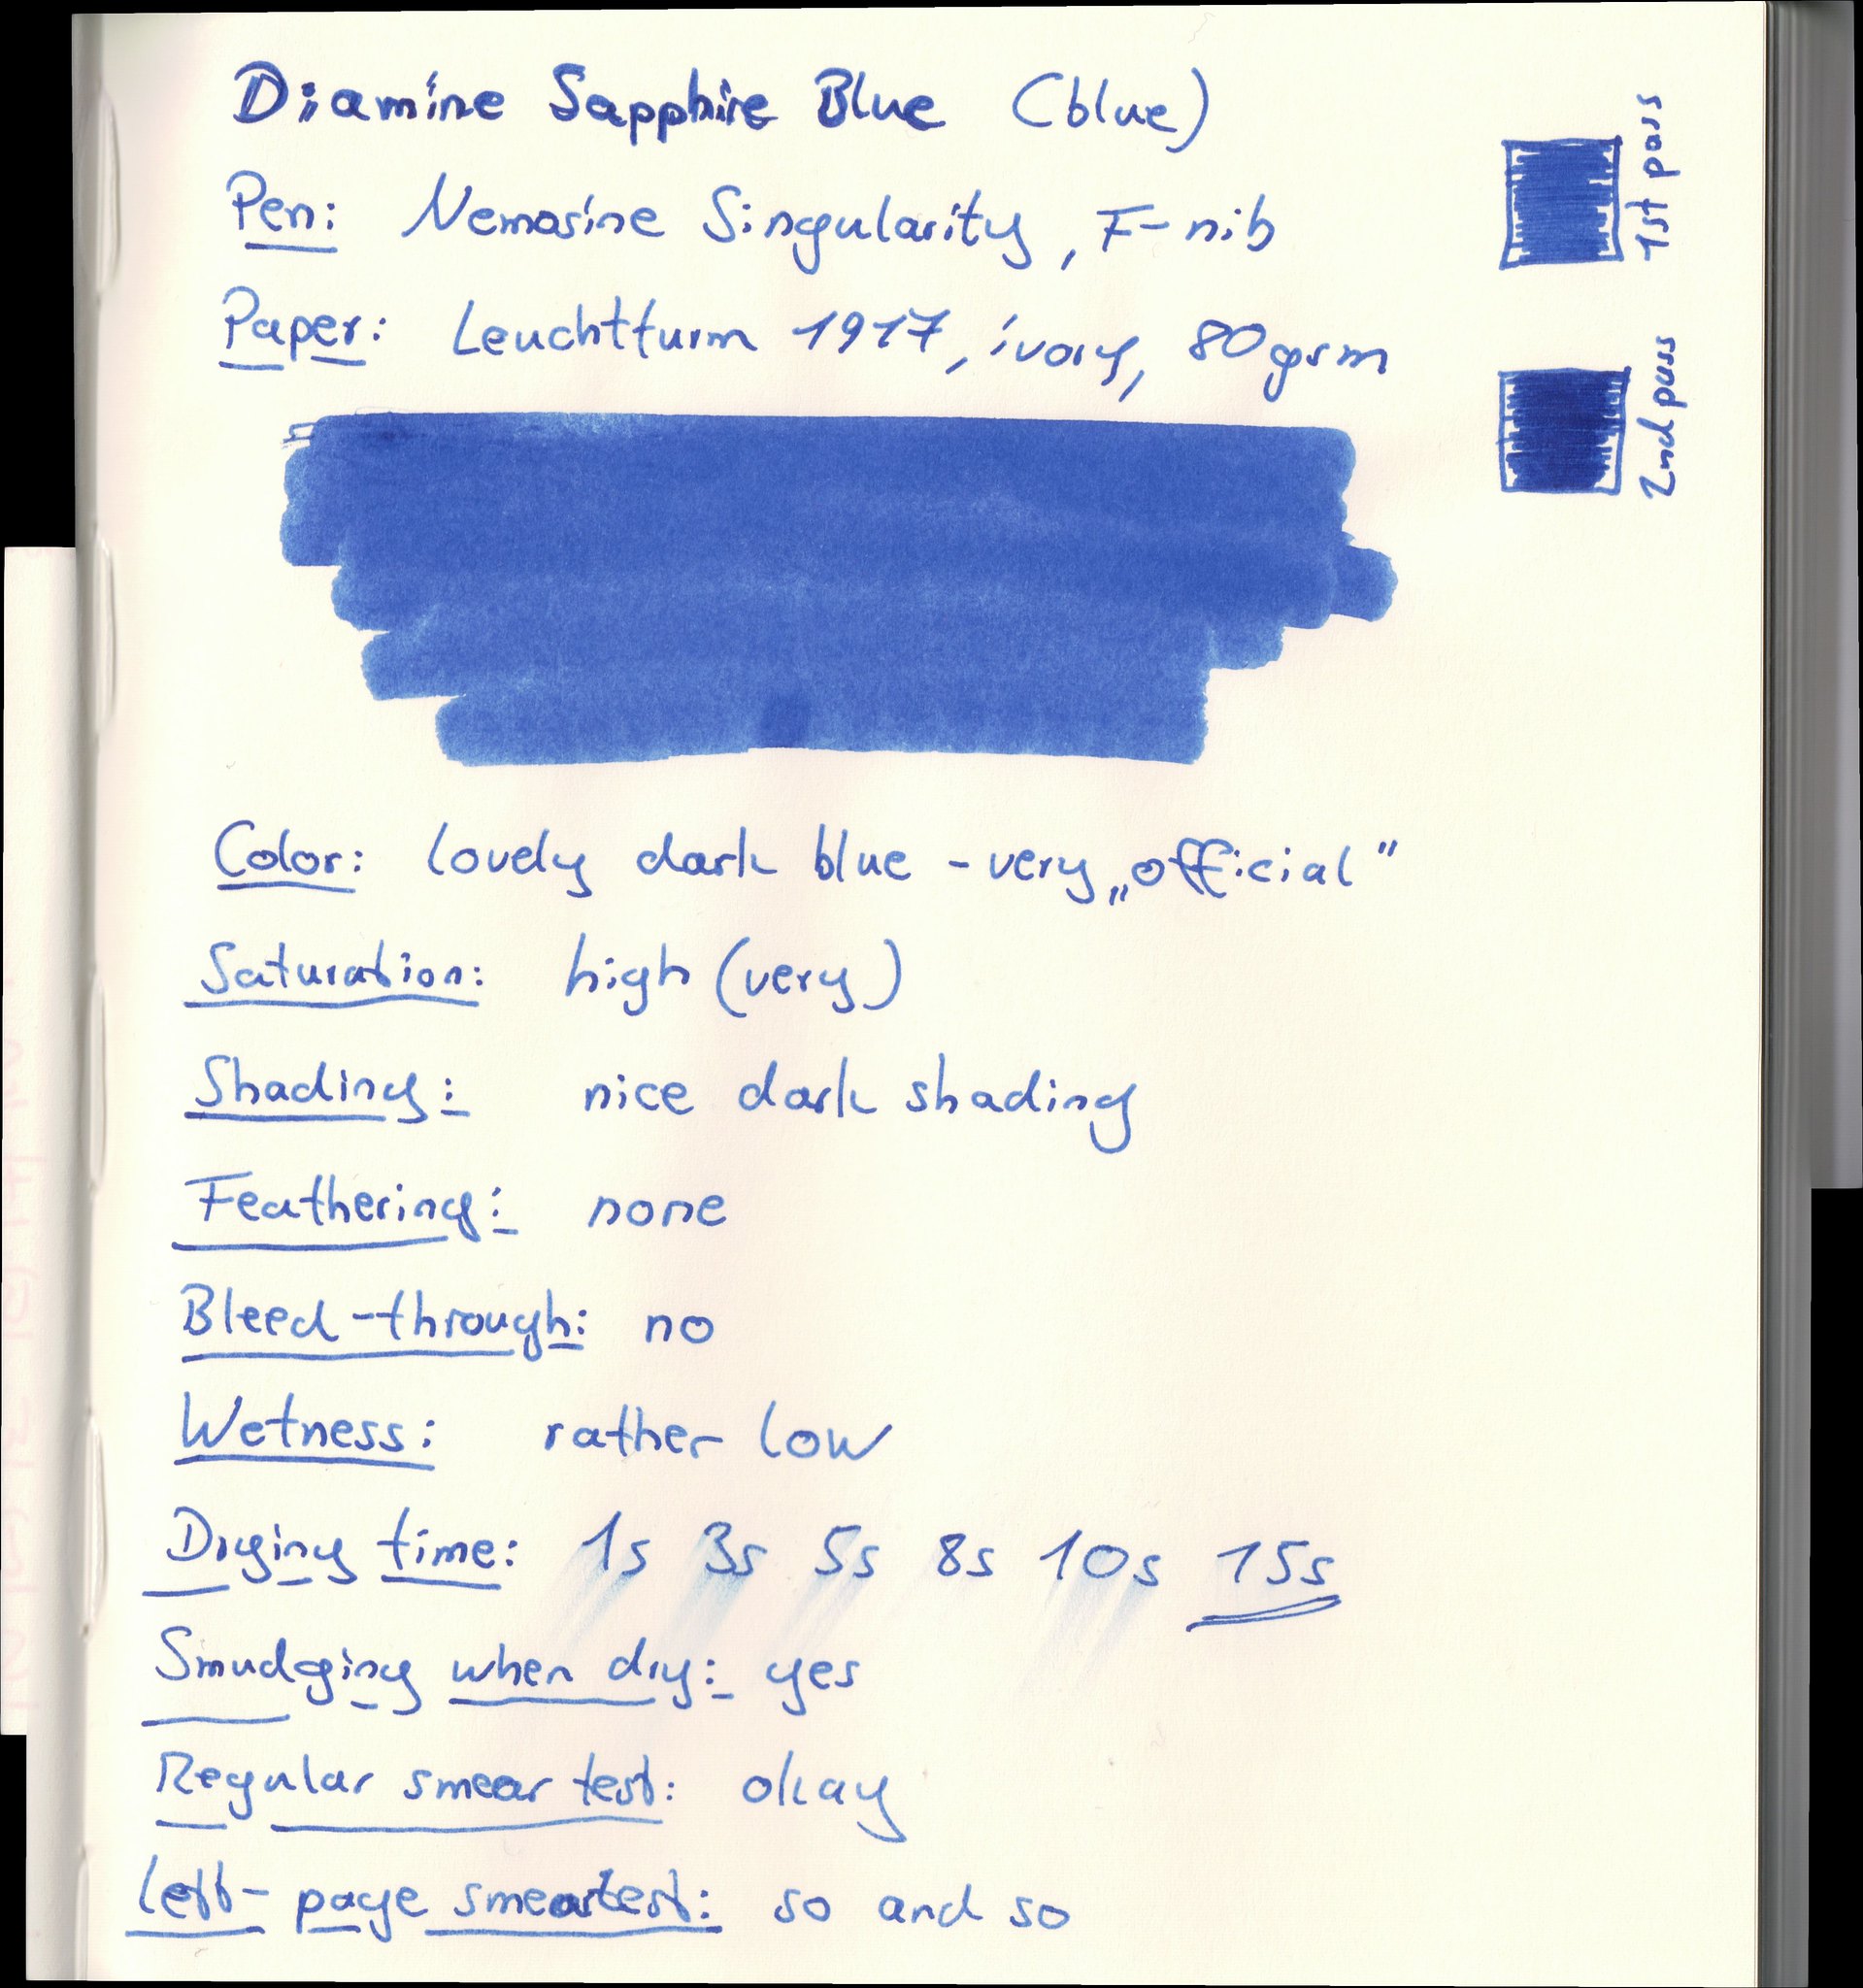 Diamine Sapphire Blue (blue)
Pen: Nemosine Singularity, F-nib
Paper: Leuchtturm 1917, ivory, 80gsm
1st pass
2nd pass
Color: lovely dark blue - very „official"
Saturation: high (very)
Shading: nice dark shading
Feathering: none
Bleed-through: no
Wetness: rather low
Drying time: 1s 3s 5s 8s 10s 15s
Smudging when dry: yes
Regular smear test: okay
Left-page smeartest: so and so